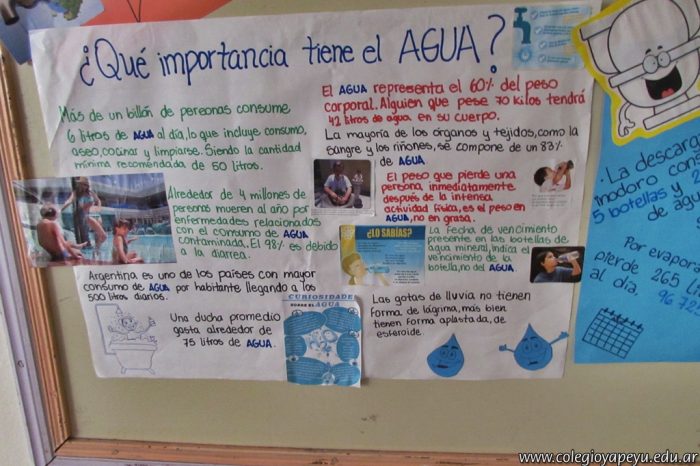 ¿Qué importancia tiene el AGUA?
Más de un billón de personas consume
6 litros de AGUA al día, lo que incluye consumo,
aseo, cocinar y limpiarse. Siendo la cantidad
mínima recomendada de 50 litros.
Alrededor de 4 millones de
personas mueren al año por
enfermedades relacionadas
con el consumo de AGUA
contaminada. El 98% es debido
a la diarrea.
Argentina es uno de los países con mayor
consumo de AGUA por habitante llegando a los
500 litros diarios.
Una ducha promedio
gasta alrededor de
75 litros de AGUA.
CURIOSIDADES
SOBRE EL
AGUA
El AGUA representa el 60% del peso
corporal. Alguien que pese 70 kilos tendrá
42 litros de agua en su cuerpo.
La mayoría de los órganos y tejidos, como la
sangre y los riñones, se compone de un 83%
de AGUA.
El peso que pierde una
persona inmediatamente
después de la intensa
actividad física, es el peso en
AGUA, no en grasa.
¿LO SABÍAS?
La fecha de vencimiento
presente en las botellas de
agua mineral, indica el
vencimiento de la
botella, no del AGUA.
Las gotas de lluvia no tienen
forma de lágrima, más bien
tienen forma aplastada, de
esferoide.
·La descarga
modoro con
5 botellas y 2
de agu
Por evapora
pierde 265 lit
al día.
www.colegioyapeyu.edu.ar